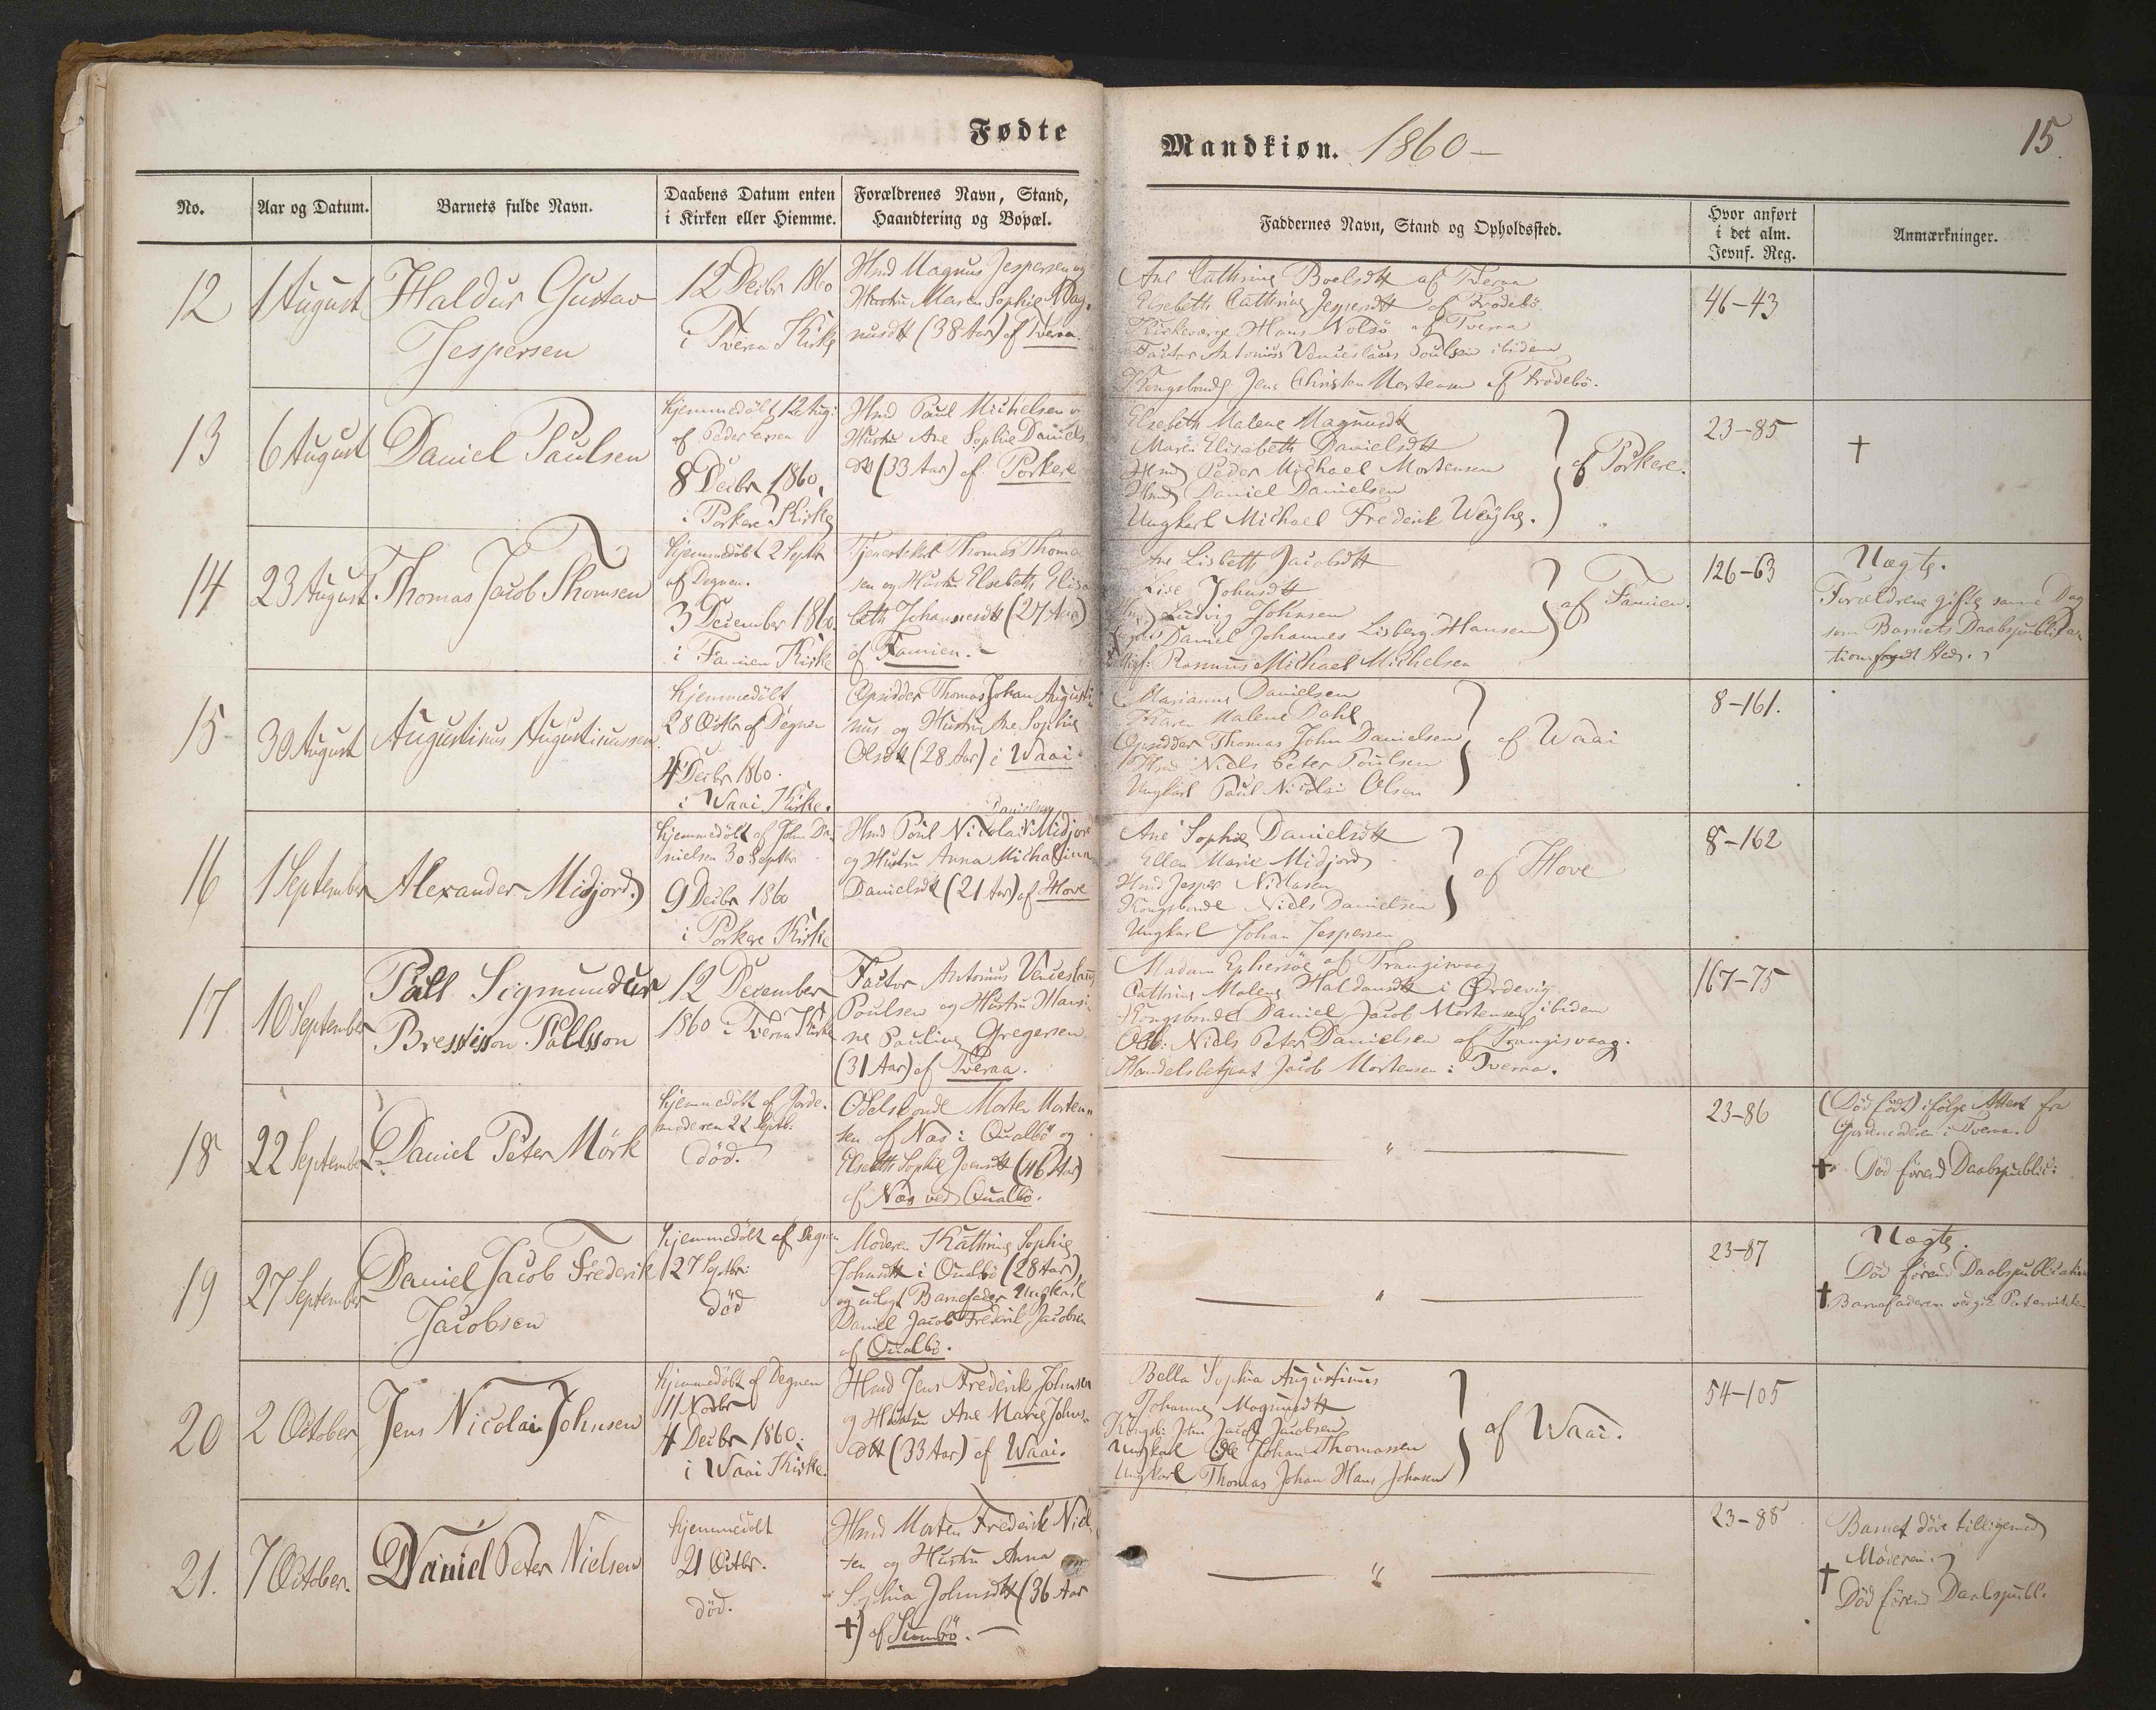 Fødte
Mandkiøn. 1860 —
15.
No.
Aar og Datum.
Barnets fulde Navn.
Daabens Datum enten
i Kirken eller Hiemme.
Forældrenes Navn, Stand,
Haandtering og Bopæl.
Faddernes Navn, Stand og Opholdssted.
Hvor anført
i det alm.
Jevnf. Reg.
Anmærkninger.
12
1 August
Haldur Gustav
Jespersen
12 Decbr 1860
i Tveraa Kirke
Hmd Magnus Jespersen og
Hustru Maren Sophie Mag-
nusdtt (38 Aar) af Tveraa.
Ane Cathrine Poelsdtt af Tveraa
Elsebeth Cathrine Jespersdtt af Frodebö
Kirkeværge Hans Nolsö af Tveraa
Factor Antonius Venceslaus Poulsen ibidem
Kongsbonde Jens Christen Mortensen af Frodebö.
46-43
13
6 August
Daniel Paulsen
hjemmedöbt 12 Aug:
af Peder Larsen
8 Decbr 1860,
i Porkere Kirke
Hmd Paul Michelsen o
Hustru Ane Sophie Daniels
dtt (33 Aar) af Porkere
Elsebeth Malene Magnusdtt
Maren Elisabeth Danielsdtt
Hmd Peder Michael Mortensen
Hmd Daniel Danielsen
Ungkarl Michael Frederik Weyhe.
af Porkere.
23-85
†
14
23 August
Thomas Jacob Thomsen
hjemmedöbt 2 Septbr
af Degnen.
3 December 1860
i Famien Kirke
Tjenestekarl Thomas Thom
sen og Hustru Elsebeth Elisa
beth Johannesdtt (27 Aar)
af Famien. -
Ane Lisbeth Jacobsdtt
Lise Johnsdtt
Ludvig Johnsen
Daniel Johannes Lisberg Hansen
Rasmus Michael Michelsen
af Famien.
126-63
Uægte.
Forældrene gifte samme Dag
som Barnets Daabspublika-
tion fandt Sted.
15
30 August
Augustinus Augustinussen
hjemmedöbt
28 Octbr af Degnen
4 Decbr 1860.
i Waai Kirke.
Opsidder Thomas Johan Augusti-
nus og Hustru Ane Sophie
Olsdtt (28 Aar) i Waai.
Marianne Danielsen
Karen Malene Dahl
Opsidder Thomas John Danielsen
Hmd Niels Peter Poulsen
Ungkarl Paul Nicolai Olsen
af Waai
8-161.
16
1 September
Alexander Midjord
hjemmedöbt af John Da-
nielsen 30 Septbr
9 Decbr 1860
i Porkere Kirke
Danielsen
Hmd Poul Nicolai Midjord
og Hustru Anna Michaline
Danielsdtt (21 Aar) af Hove
Ane Sophie Danielsdtt
Ellen Marie Midjord
Hmd Jesper Niclasen
Kongsbonde Niels Danielsen
Ungkarl Johan Jespersen
af Hove
8-162
17
10 September
Páll Sigmundur
Brestisson Pállsson
12 December
1860 i Tveraa Kirke
Factor Antonius Venceslaus
Poulsen og Hustru Hansi-
ne Pauline Gregersen
(31 Aar) af Tveraa.
Madam Ephersöe af Trangisvaag
Cathrine Malene Haldansdtt i Ordevig
Kongsbonde Daniel Jacob Mortensen ibidem
Niels Peter Danielsen af Trangisvaag.
Handelsbetjent Jacob Mortensen i Tveraa.
167-75
18
22 September
Daniel Peter Mörk
hjemmedöbt af Jorde-
moderen 22 Septb.
död.
Odelsbonde Morten Morten-
sen af Næs i Qualbö og
Elsebeth Sophie Joensdtt (46 Aar)
af Næs ved Qualbö.
— " —
23-86
(Dödfödt) ifölge Attest fra
Gjordemoderen i Tveraa.
† Död förend Daabspublic:
19
27 September
Daniel Jacob Frederik
Jacobsen
hjemmedöbt af Degnen
27 Septbr:
död
Moderen Kathrine Sophie
Johnsdtt i Qualbö (28 Aar),
og udlagt Barnefader Ungkarl
Daniel Jacob Frederik Jacobsen
af Qualbö.
— " —
23-87
Uægte.
Död förend Daabspublication
† Barnefaderen vedgik Paterniteten
20
2 October
Jens Nicolai Johnsen
hjemmedöbt af Degnen
11 Novbr
4 Decbr 1860.
i Waai Kirke.
Hmd Jens Frederik Johnsen
og Hustru Ane Marie Johns-
dtt (33 Aar) af Waai.
Bella Sophia Augustinus
Johanne Magnusdtt
Kongsb: John Jacob Jacobsen
Ungkarl Ole Johan Thomassen
Ungkarl Thomas Johan Hans Johnsen
af Waai.
54-105
21.
7 October.
Daniel Peter Nielsen
hjemmedöbt
21 Octbr.
död.
Hmd Morten Frederik Niel
sen og Hustru Anna
Sophia Johnsdtt (36 Aar
†) af Sumbö. —
— " —
23-88
Barnet döde tilligemed
Moderen.
†
Död förend Daabspubl.